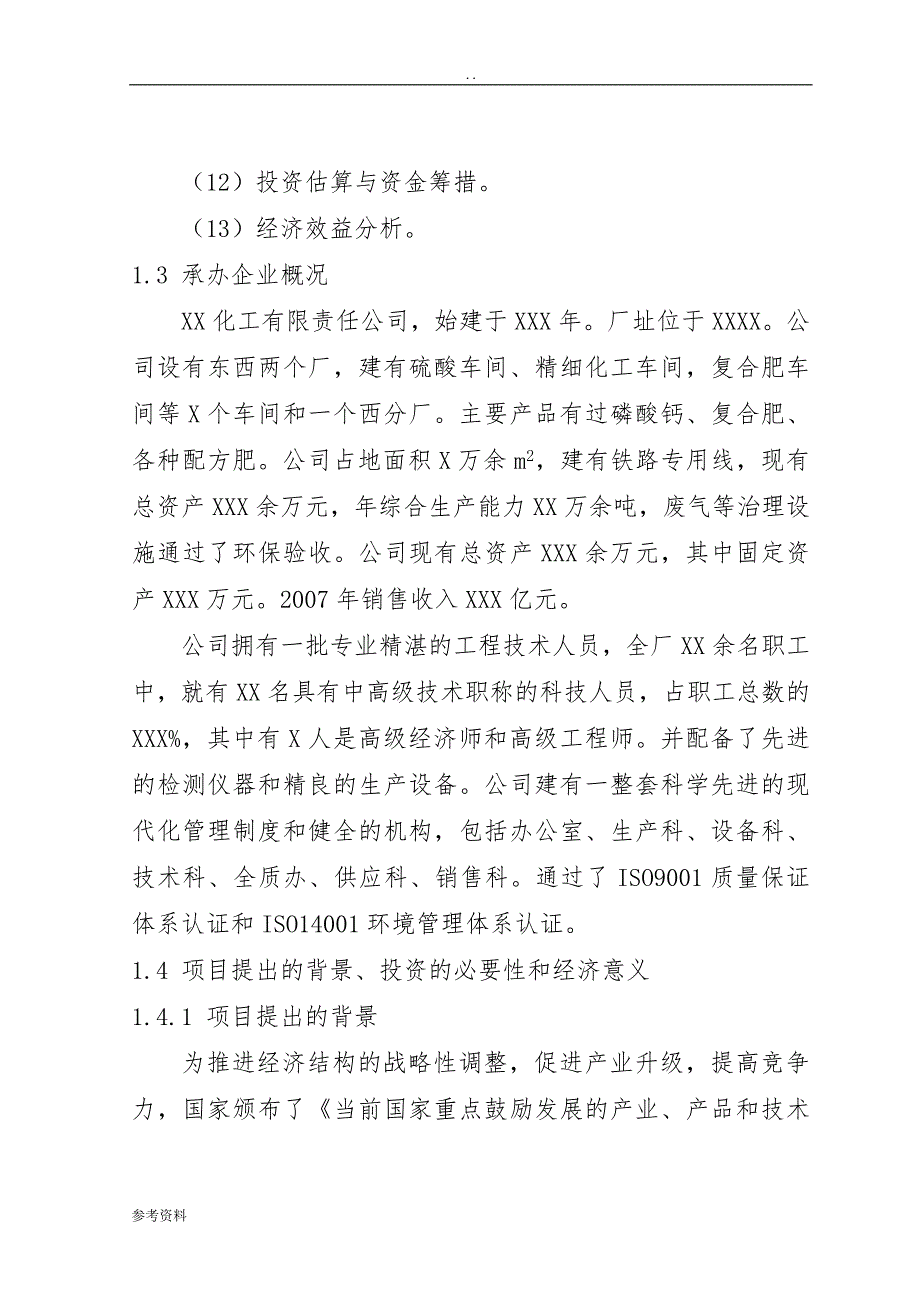 ..
（12）投资估算与资金筹措。
（13）经济效益分析。
1.3 承办企业概况
XX 化工有限责任公司，始建于 XXX 年。厂址位于 XXXX。公
司设有东西两个厂，建有硫酸车间、精细化工车间，复合肥车
间等 X 个车间和一个西分厂。主要产品有过磷酸钙、复合肥、
各种配方肥。公司占地面积 X 万余 m²，建有铁路专用线，现有
总资产 XXX 余万元，年综合生产能力 XX 万余吨，废气等治理设
施通过了环保验收。公司现有总资产 XXX 余万元，其中固定资
产 XXX 万元。2007 年销售收入 XXX 亿元。
公司拥有一批专业精湛的工程技术人员，全厂 XX 余名职工
中，就有 XX 名具有中高级技术职称的科技人员，占职工总数的
XXX%，其中有 X 人是高级经济师和高级工程师。并配备了先进
的检测仪器和精良的生产设备。公司建有一整套科学先进的现
代化管理制度和健全的机构，包括办公室、生产科、设备科、
技术科、全质办、供应科、销售科。通过了 ISO9001 质量保证
体系认证和 ISO14001 环境管理体系认证。
1.4 项目提出的背景、投资的必要性和经济意义
1.4.1 项目提出的背景
为推进经济结构的战略性调整，促进产业升级，提高竞争
力，国家颁布了《当前国家重点鼓励发展的产业、产品和技术
参考资料